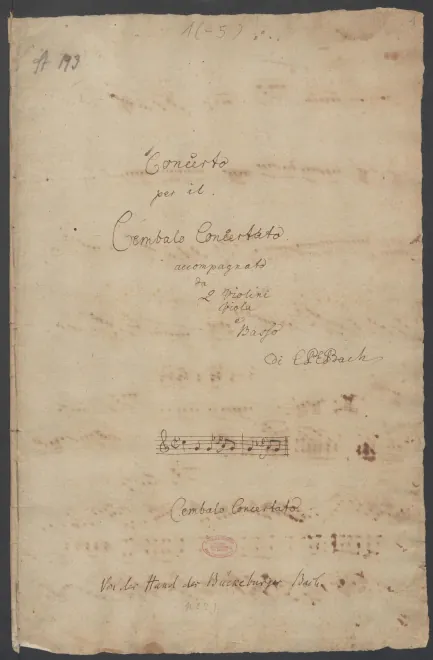 1(-5)
A 193
Concerto
per il
Cembalo Concertato.
accompagnato
da
2 Violini
Viola
e
Basso
Di C.P.E. Bach
Cembalo Concertato.
Von der Hand des Bückeburger Bach